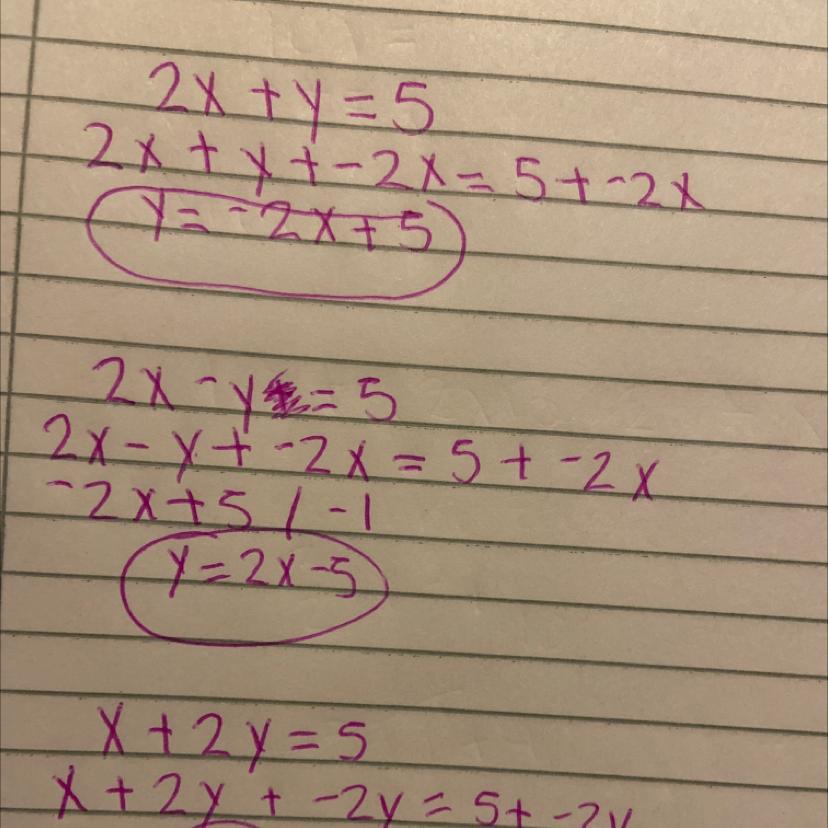 2x + y = 5
2x + y + -2x = 5 + -2x
y = -2x + 5
2x - y = 5
2x - y + -2x = 5 + -2x
-2x + 5 / -1
y = 2x - 5
x + 2y = 5
x + 2y + -2y = 5 + -2y